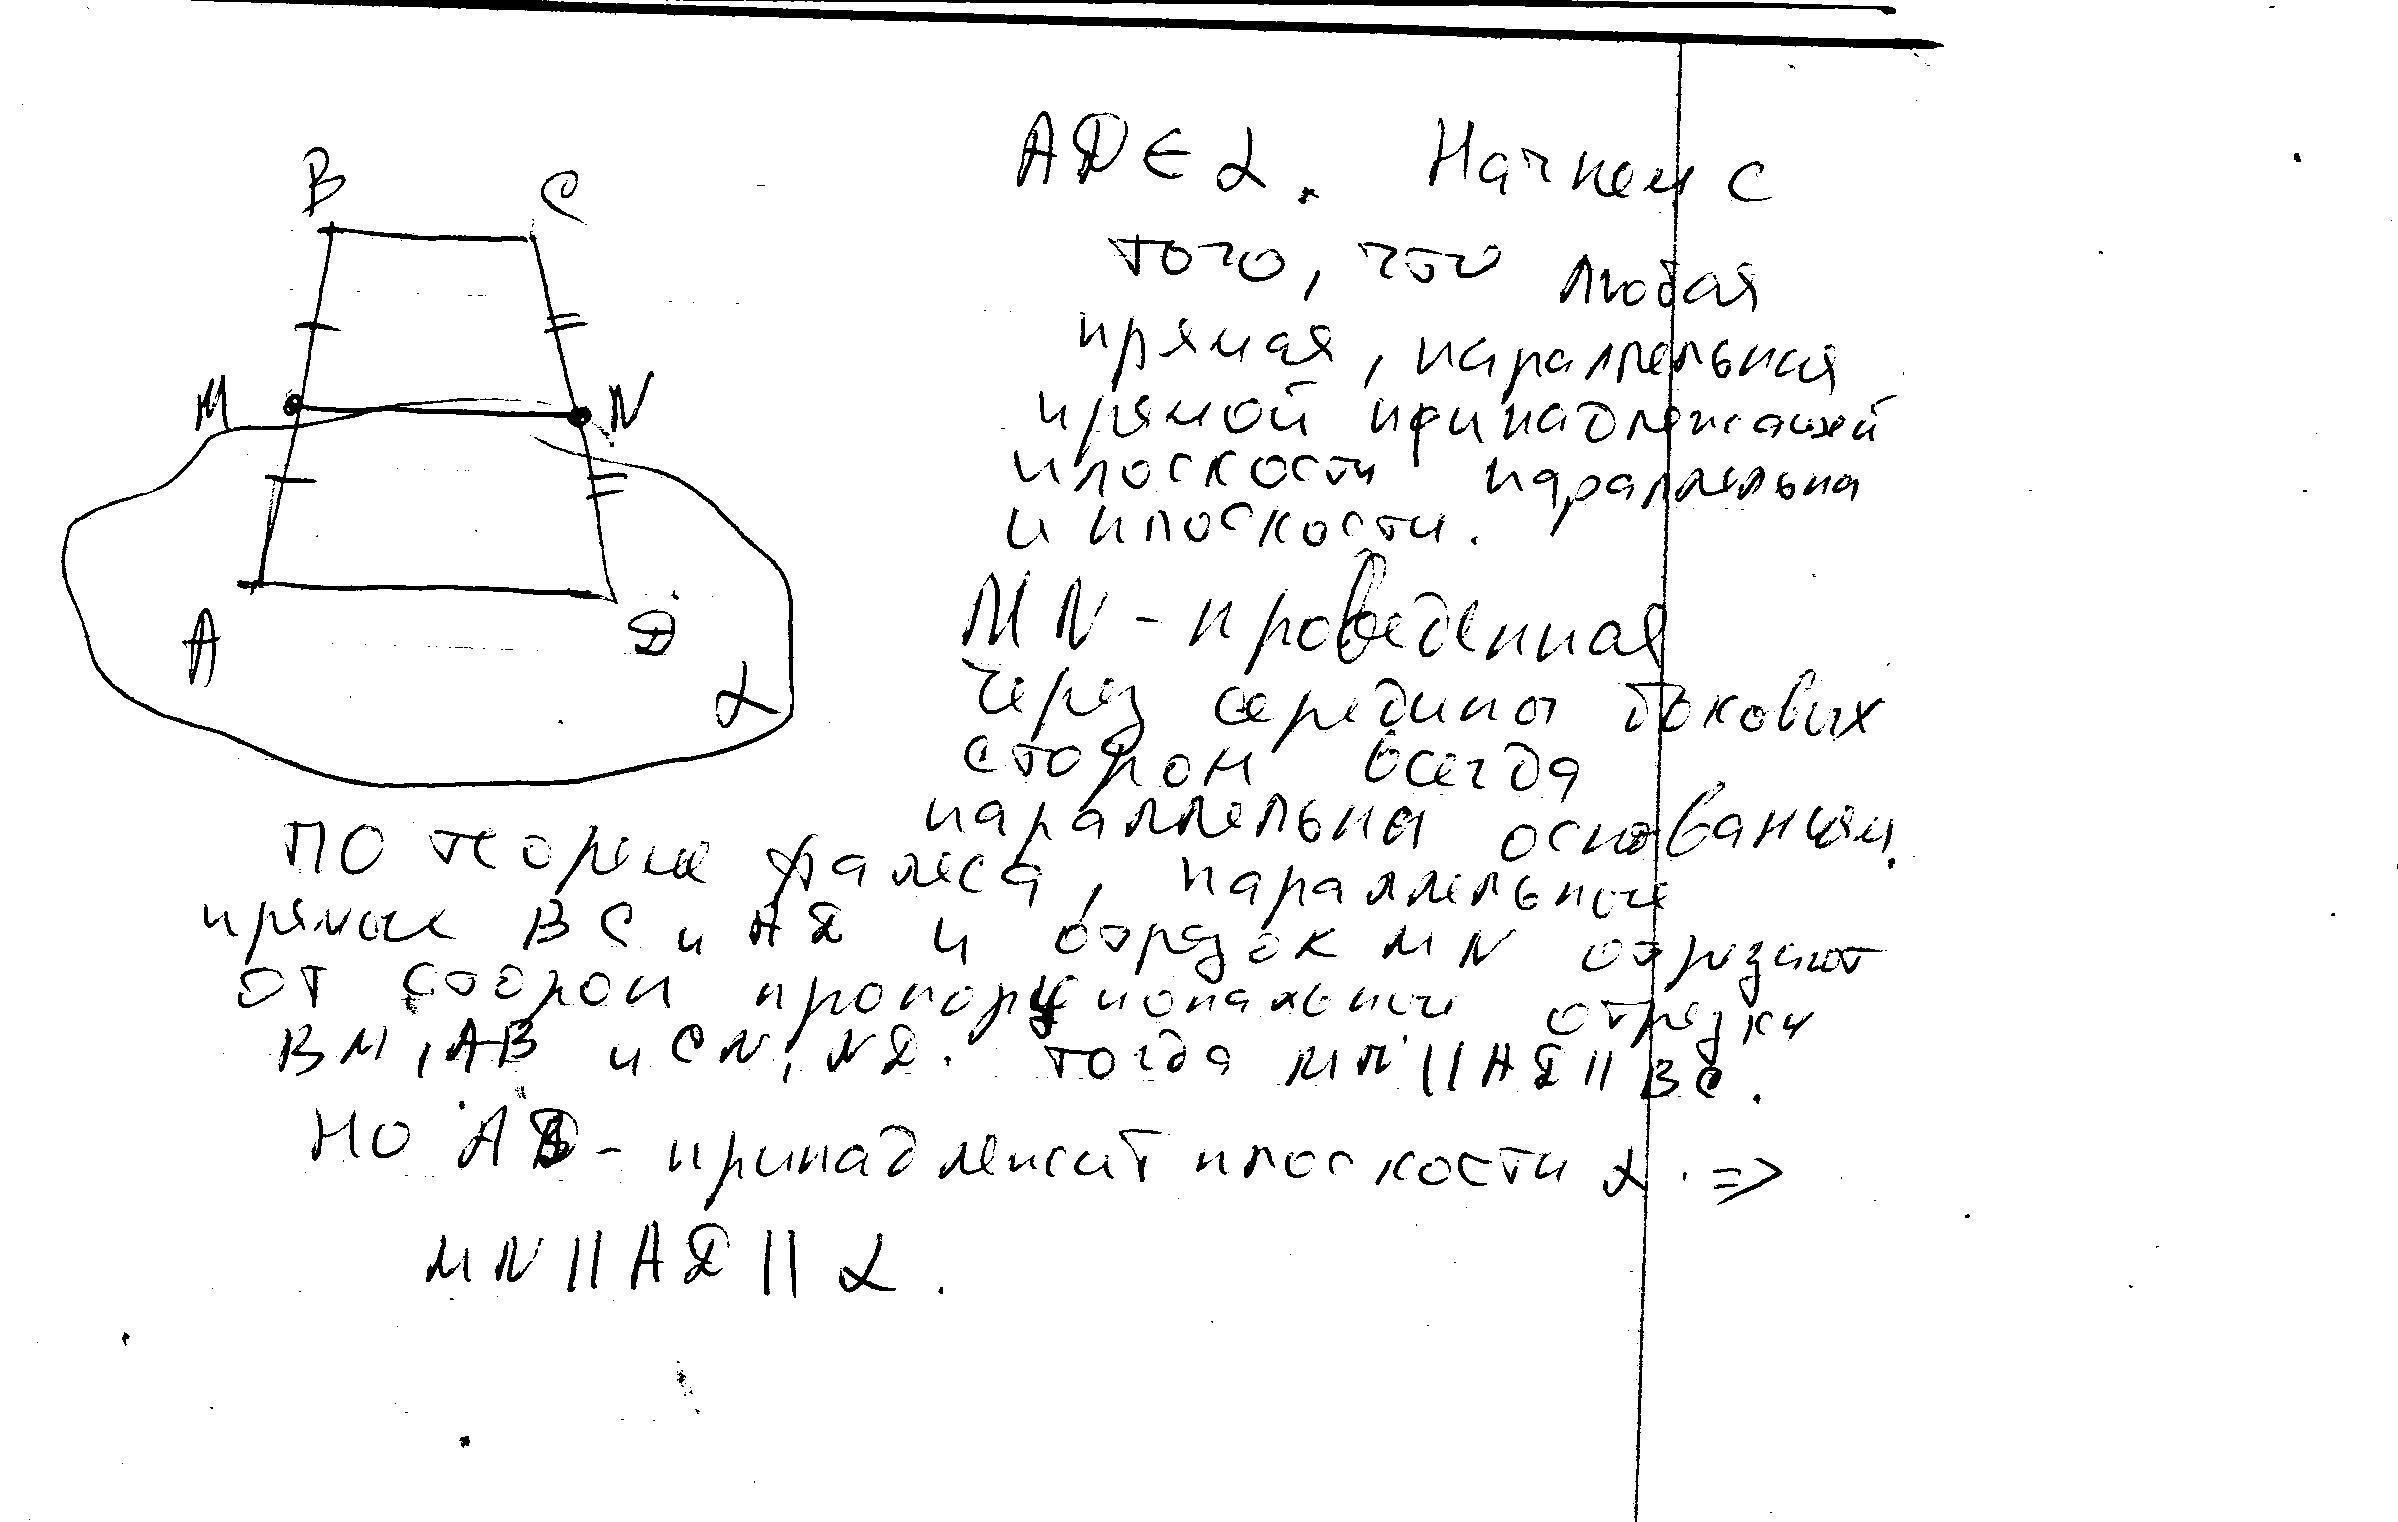 B C
M N
A D
α
AD ∈ α. Начнем с
того, что любая
прямая, параллельная
прямой принадлежащей
плоскости параллельна
и плоскости.
MN - проведенная
через середины боковых
сторон всегда
параллельна основаниям.
По теореме фалеса, параллельные
прямые BC и AD и отрезок MN отрезают
от сторон пропорциональные отрезки
BM, AB и CN, ND. тогда MN || AD || BC.
Но AD - принадлежит плоскости α. =>
MN || AD || α.